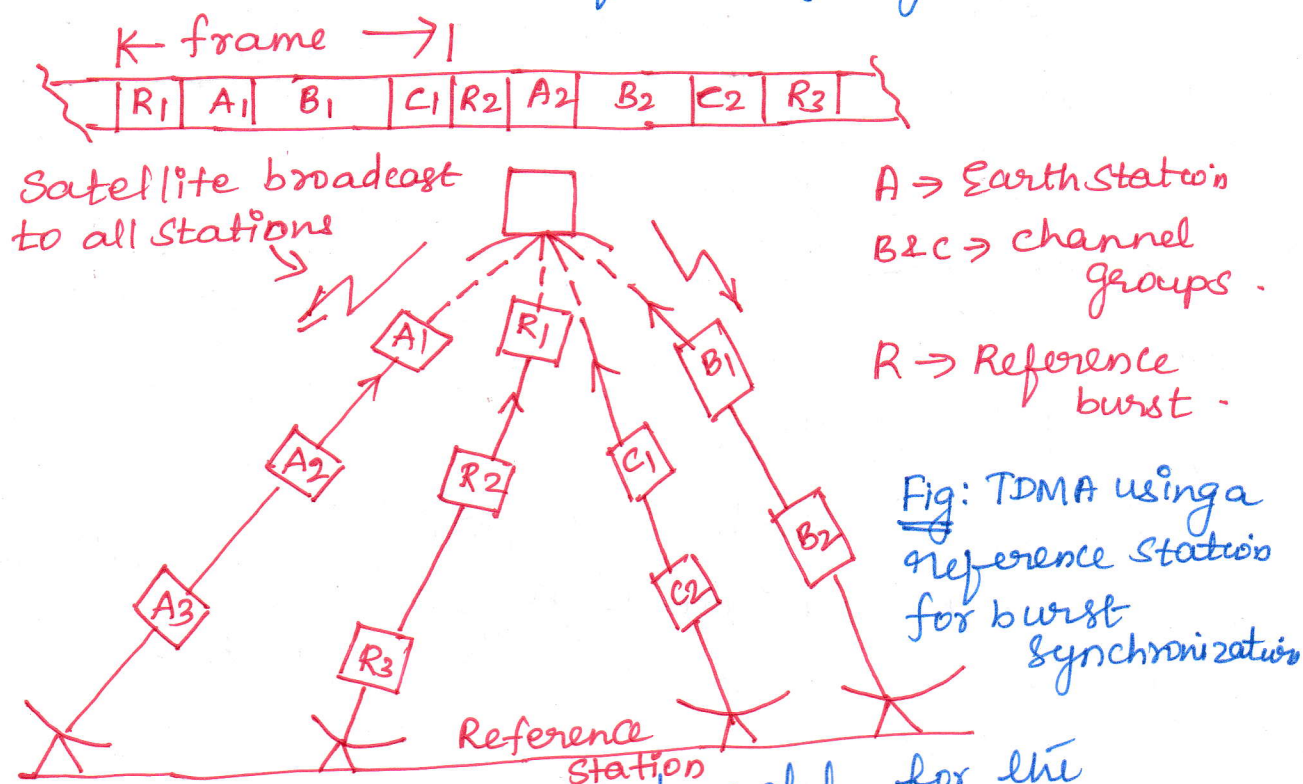 frame
R1 A1 B1 C1 R2 A2 B2 C2 R3
Satellite broadcast
to all Stations
A → Earth Station
B & C → channel
groups.
R → Reference
burst.
A1
R1
B1
A2
R2
C1
B2
A3
R3
C2
Fig: TDMA using a
reference station
for burst
synchronization
Reference
Station
for the